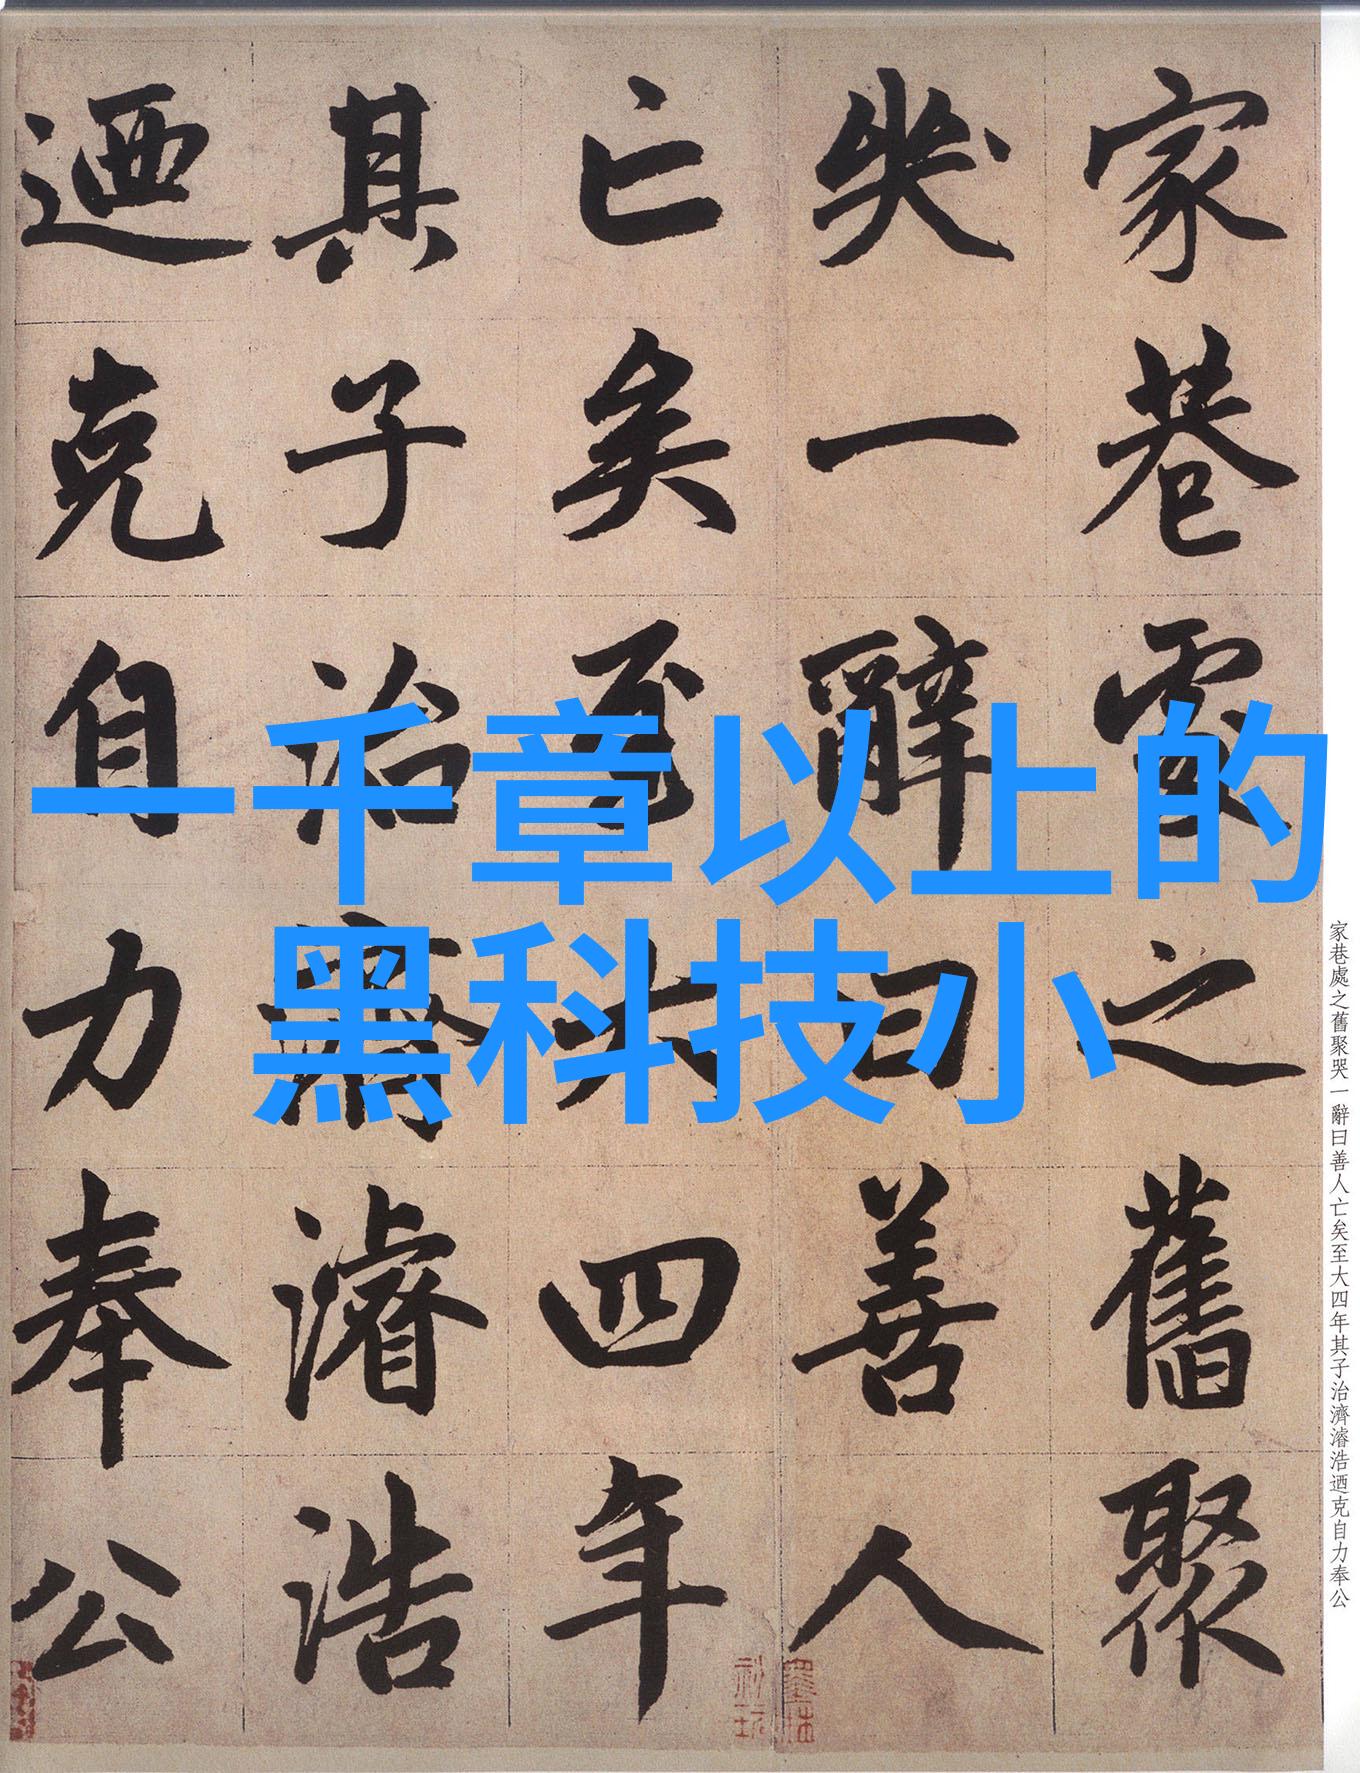 家巷處之舊聚
哭一辭曰善人
亡矣至大四年
其子治濟濬浩
迺克自力奉公
一千章以上的
黑科技小
家巷處之舊聚哭一辭曰善人亡矣至大四年其子治濟濬浩迺克自力奉公